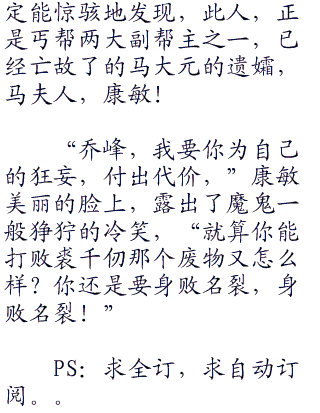 定能惊骇地发现，此人，正
是丐帮两大副帮主之一，已
经亡故了的马大元的遗孀，
马夫人，康敏！
“乔峰，我要你为自己
的狂妄，付出代价，”康敏
美丽的脸上，露出了魔鬼一
般狰狞的冷笑，“就算你能
打败裘千仞那个废物又怎么
样？你还是要身败名裂，身
败名裂！”
PS：求全订，求自动订
阅。。